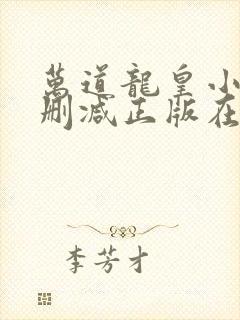 萬道龍皇小
刪減正版在
李芳才